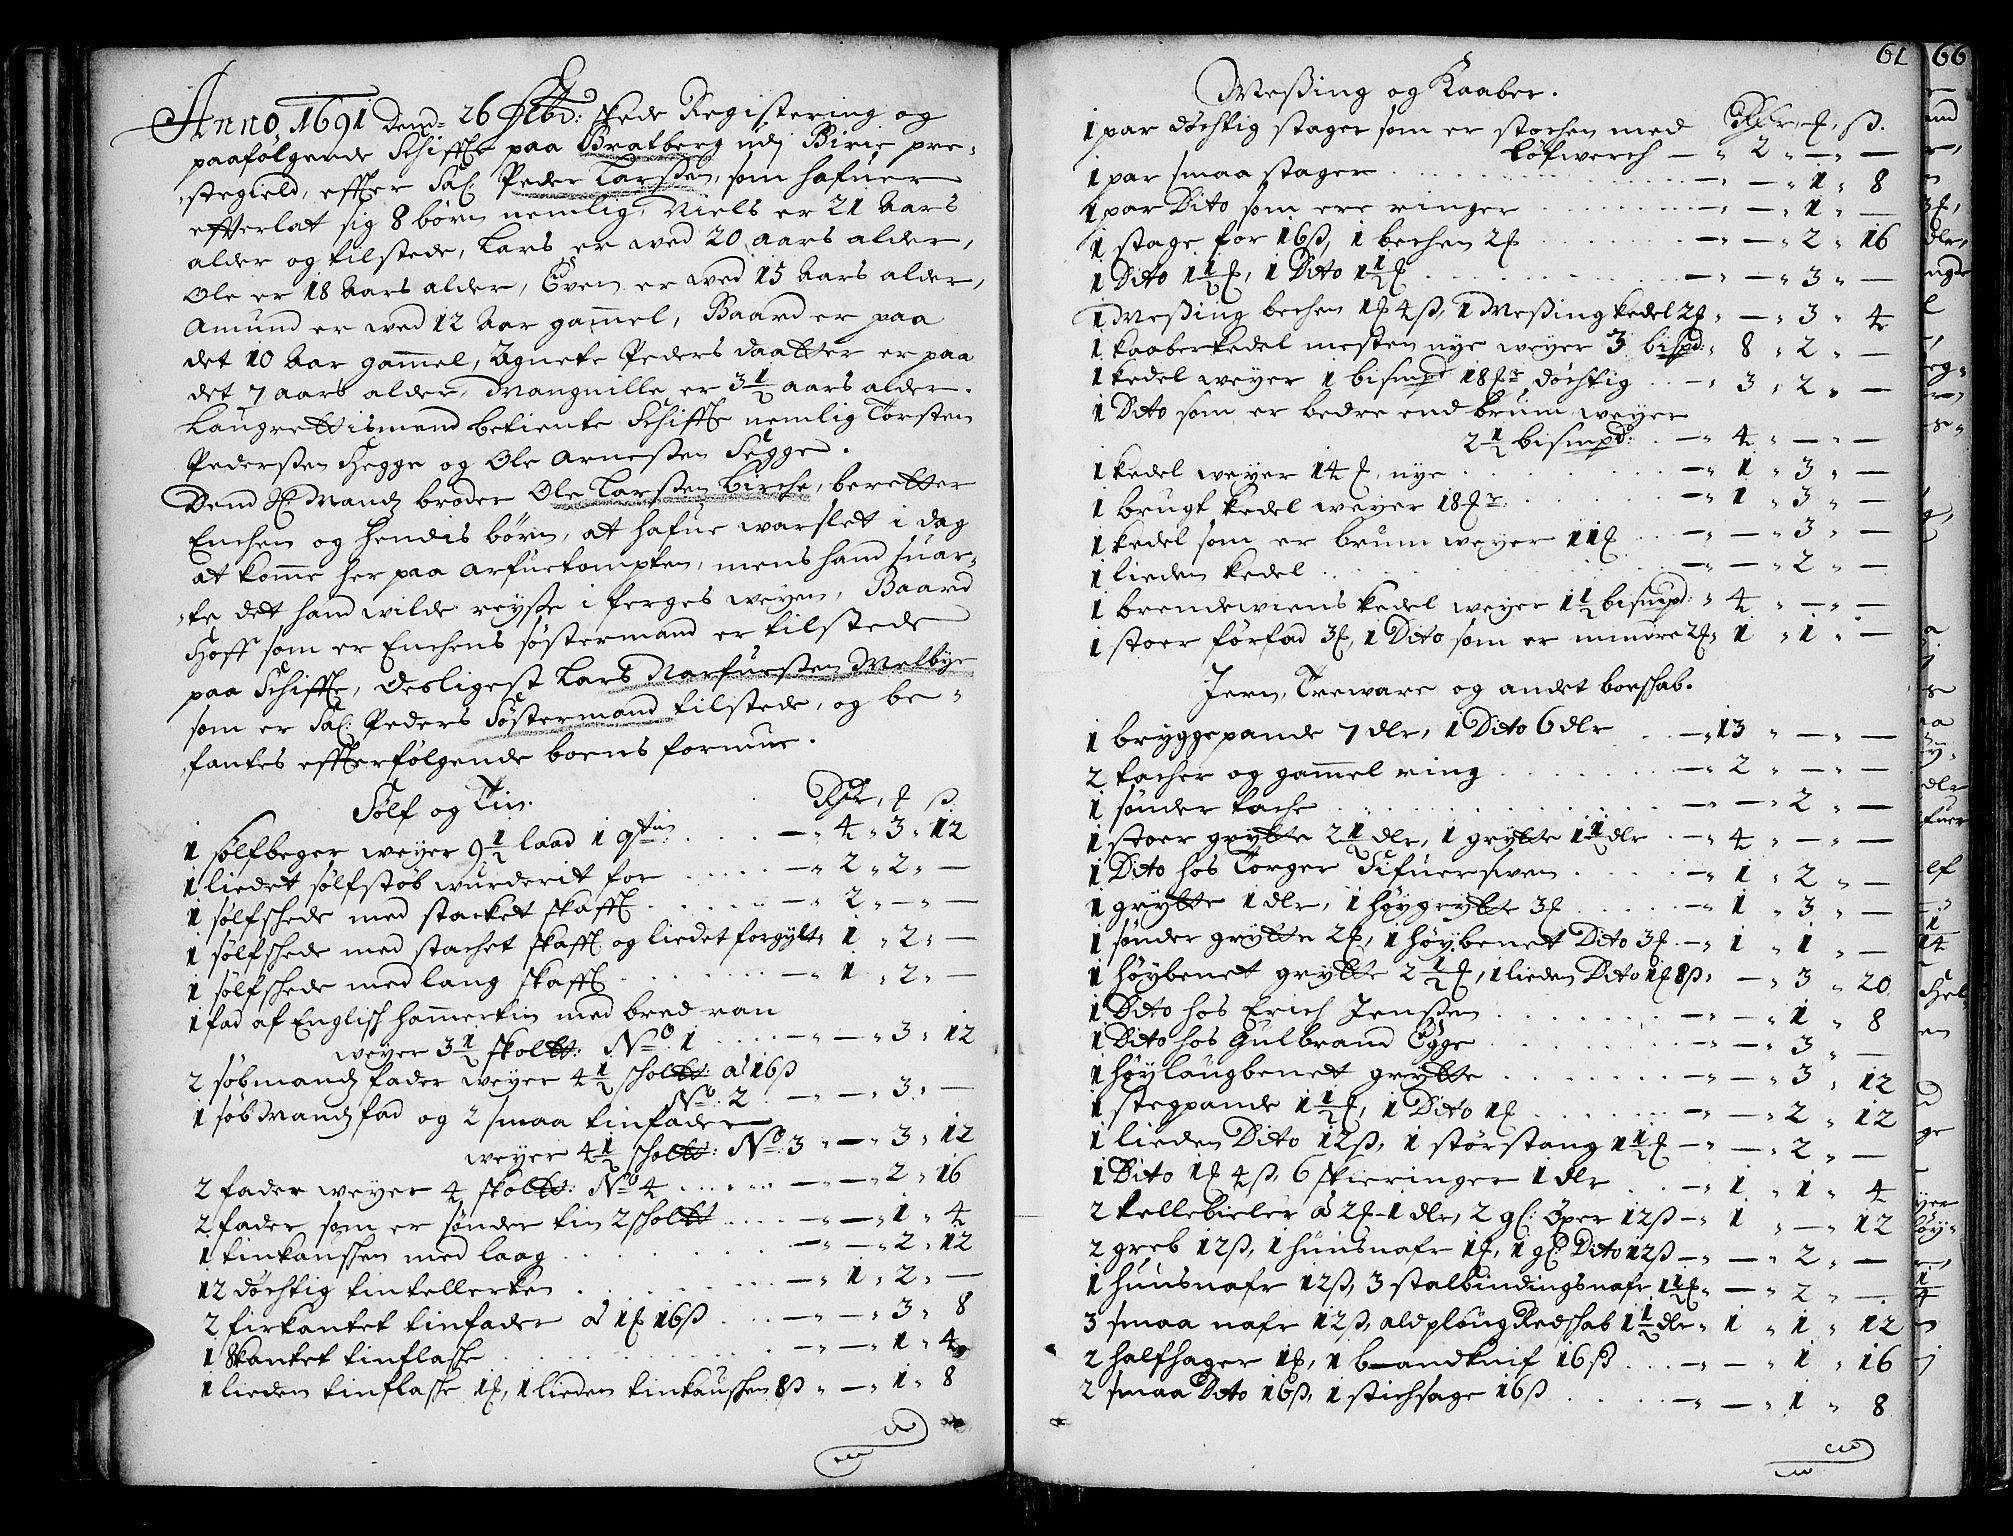 Anno, 1691 Dend 26 8tbd: skede Registering og
paafølgende Schiffte paa Bratberg udj Birie pre-
stegield, effter Sal: Peder Larssen, som hafuer
effterlat sig 8 børn nemlig, Niels er 21 Aars
alder og tilstede, Lars er wed 20 aars alder,
Ole er 18 Aars alder, Even er wed 15 Aars alder,
Amund er wed 12 Aar gammel, Baard er paa
det 10 Aar gammel, Agnete Peders daatter er paa
det 7 aars alder, Mangnille er 3½ aars alder.
Laugrettismend betiente Schiffte nemlig Torsten
Pederssen Hegge og Ole Arnessen Segge.
Dend Sl: Mandz broder Ole Larssen Birche, beretter
Enchen og hendis børn, at hafue warslet i dag
at komme her paa arfuetompten, mens hand suar-
te det hand wilde reysse i Perges weyen, Baard
Hoff som er Enchens søstermand er tilstede
paa Schiffte, desligest Lars Narfuessen Melbye
som er Sal: Peders Søstermand tilstede, og be-
fantes effterfølgende boens formue.
Sølf og Tin. Rdlr, ℔ ß
1 sølfbeger weyer 9½ laad 1 qtin: — 4 " 3 " 12
1 liedet sølfstøb wurderit for — 2 " 2 " —
1 sølfschede med stacket skafft — 2 " — " —
1 sølfschede med stachet skafft og liedet forgylt " 1 " 2 " —
1 sølfschede med lang skafft — 1 " 2 " —
1 fad af Englisch hammertin med bred ran
weyer 3½ skoltt: No 1 — " — " 3 " 12
2 søbmandz fader weyer 4½ scholtt a 16ß
No. 2 — " — " 3 " —
1 søbmandz fad og 2 smaa tinfader
weyer 4½ scholtt: No. 3 " — " 3 " 12
2 fader weyer 4 skoltt: No 4 — " — " 2 " 16
2 fader som er sønder tin 2 scholtt — " — " 1 " 4
1 tinkanschen med laag — " — " 2 " 12
12 døchtig tintellercken — " 1 " 2 " —
2 firkantet tinfader a 1℔ 16ß — " — " 3 " 8
1 8kantet tinflasche — " — " 1 " 4
1 lieden tinflasche 1℔, 1 lieden tinkanschen 8ß " — " 1 " 8
61
Messing og Kaaber.
1 par døchtig stager som er støchen med Rdlr, ℔, ß.
løfwerch — " 2 " — " —
1 par smaa stager — " — " 1 " 8
1 par Dito som ere ringer — " — " 1 " —
1 stage for 16ß, 1 bechen 2℔ — " — " 2 " 16
1 Dito 1½℔, 1 Dito 1½℔ — " — " 3 " —
1 Messing bechen 1℔ 4ß, 1 Messing kedel 2℔ " — " 3 " 4
1 kaaberkedel mesten nye weyer 3 bispd: " 8 " 2 " —
1 kedel weyer 1 bismpd 18℔r døchtig — " 3 " 2 " —
1 Dito som er bedre end brum weyer
2½ bismpd: — " 4 " — " —
1 kedel weyer 14℔, nye — " 1 " 3 " —
1 brugt kedel weyer 18℔r: — " 1 " 3 " —
1 kedel som er brum weyer 11℔ — " — " 3 " —
1 lieden kedel — " — " 2 " —
1 brendewiens kedel weyer 1½ bismpd: " 4 " — " —
1 stoer førfad 3℔, 1 Dito som er mindre 2℔ " 1 " 1 " —
Jern, Treware og andet boeschab.
1 bryggepande 7 dlr, 1 Dito 6 dlr — " 13 " — " —
2 tacher og gammel ring — " 2 " — " —
1 sønder tache — " — " 2 " —
1 stoer grytte 2½ dlr, 1 grytte 1½ dlr — " 4 " — " —
1 Dito hos Torger Sifuerswen — " 1 " 2 " —
1 grytte 1 dlr, 1 høygrytte 3℔ — " 1 " 3 " —
1 sønder grytte 2℔, 1 høybenet Dito 3℔ — " 1 " 1 " —
1 høybenet grytte 2½℔, 1 lieden Dito 1℔ 8ß " — " 3 " 20
1 Dito hos Erich Jenssen — " — " 1 " 8
1 Dito hos Gulbrand Egge — " — " 3 " —
1 høylaugbenet grytte — " — " 3 " 12
1 stegpande 1½℔, 1 Dito 1℔ — " — " 2 " 12
1 lieden Dito 12ß, 1 størstang 1½℔ — " — " 2 " —
1 Dito 1℔ 4ß, 6 skieringer 1 dlr — " 1 " 1 " 4
2 tellebieler a 2℔ 1 dlr, 2 gl: Øxer 12ß — " 1 " — " 12
2 greb 12ß, 1 huusnafr 1℔, 1 gl: Dito 12ß — " — " 2 " —
1 huusnafr 12ß, 3 stalbindingsnafr 1½℔ " — " 2 " —
3 smaa nafr 12ß, ald ploug Redschab 1½ dlr " 1 " 1 " 12
2 halfhager 1℔, 1 b-andknif 16ß — " — " 1 " 16
2 smaa Dito 16ß, 1 stichsage 16ß — " — " 1 " 8
66